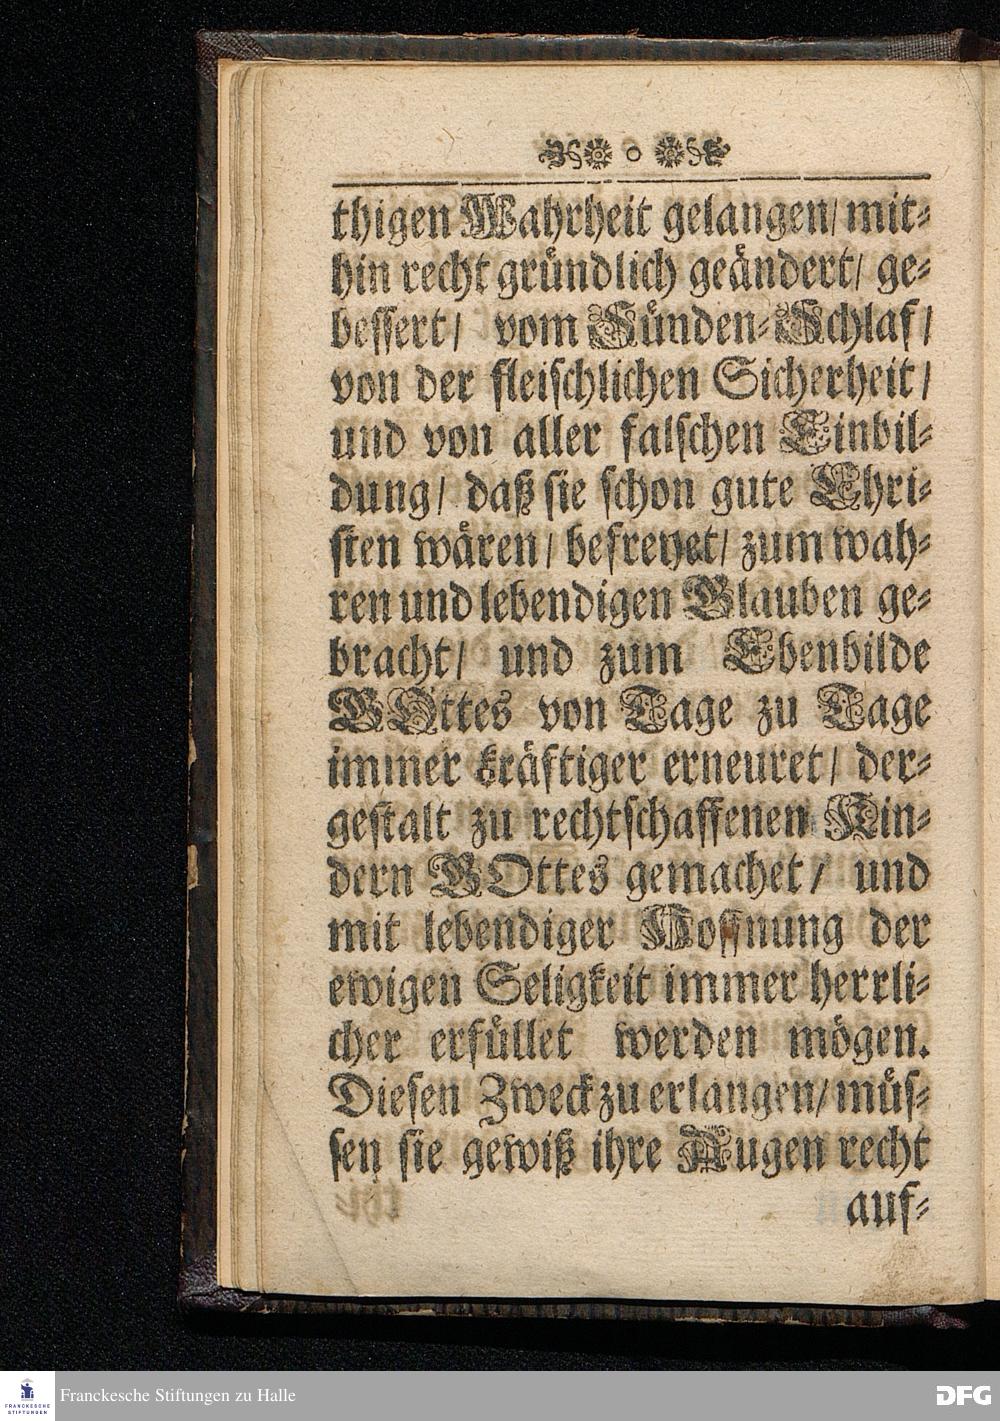 thigen Wahrheit gelangen/ mit-
hin recht gründlich geändert/ ge-
bessert/ vom Sünden-Schlaf/
von der fleischlichen Sicherheit/
und von aller falschen Einbil-
dung/ daß sie schon gute Chri-
sten wären/ befreyet/ zum wah-
ren und lebendigen Glauben ge-
bracht/ und zum Ebenbilde
GOttes von Tage zu Tage
immer kräftiger erneuret/ der-
gestalt zu rechtschaffenen Kin-
dern GOttes gemachet/ und
mit lebendiger Hoffnung der
ewigen Seligkeit immer herrli-
cher erfüllet werden mögen.
Diesen Zweck zu erlangen/ müs-
sen sie gewiß ihre Augen recht
auf-
FRANCKESCHE
STIFTUNGEN
Franckesche Stiftungen zu Halle
DFG